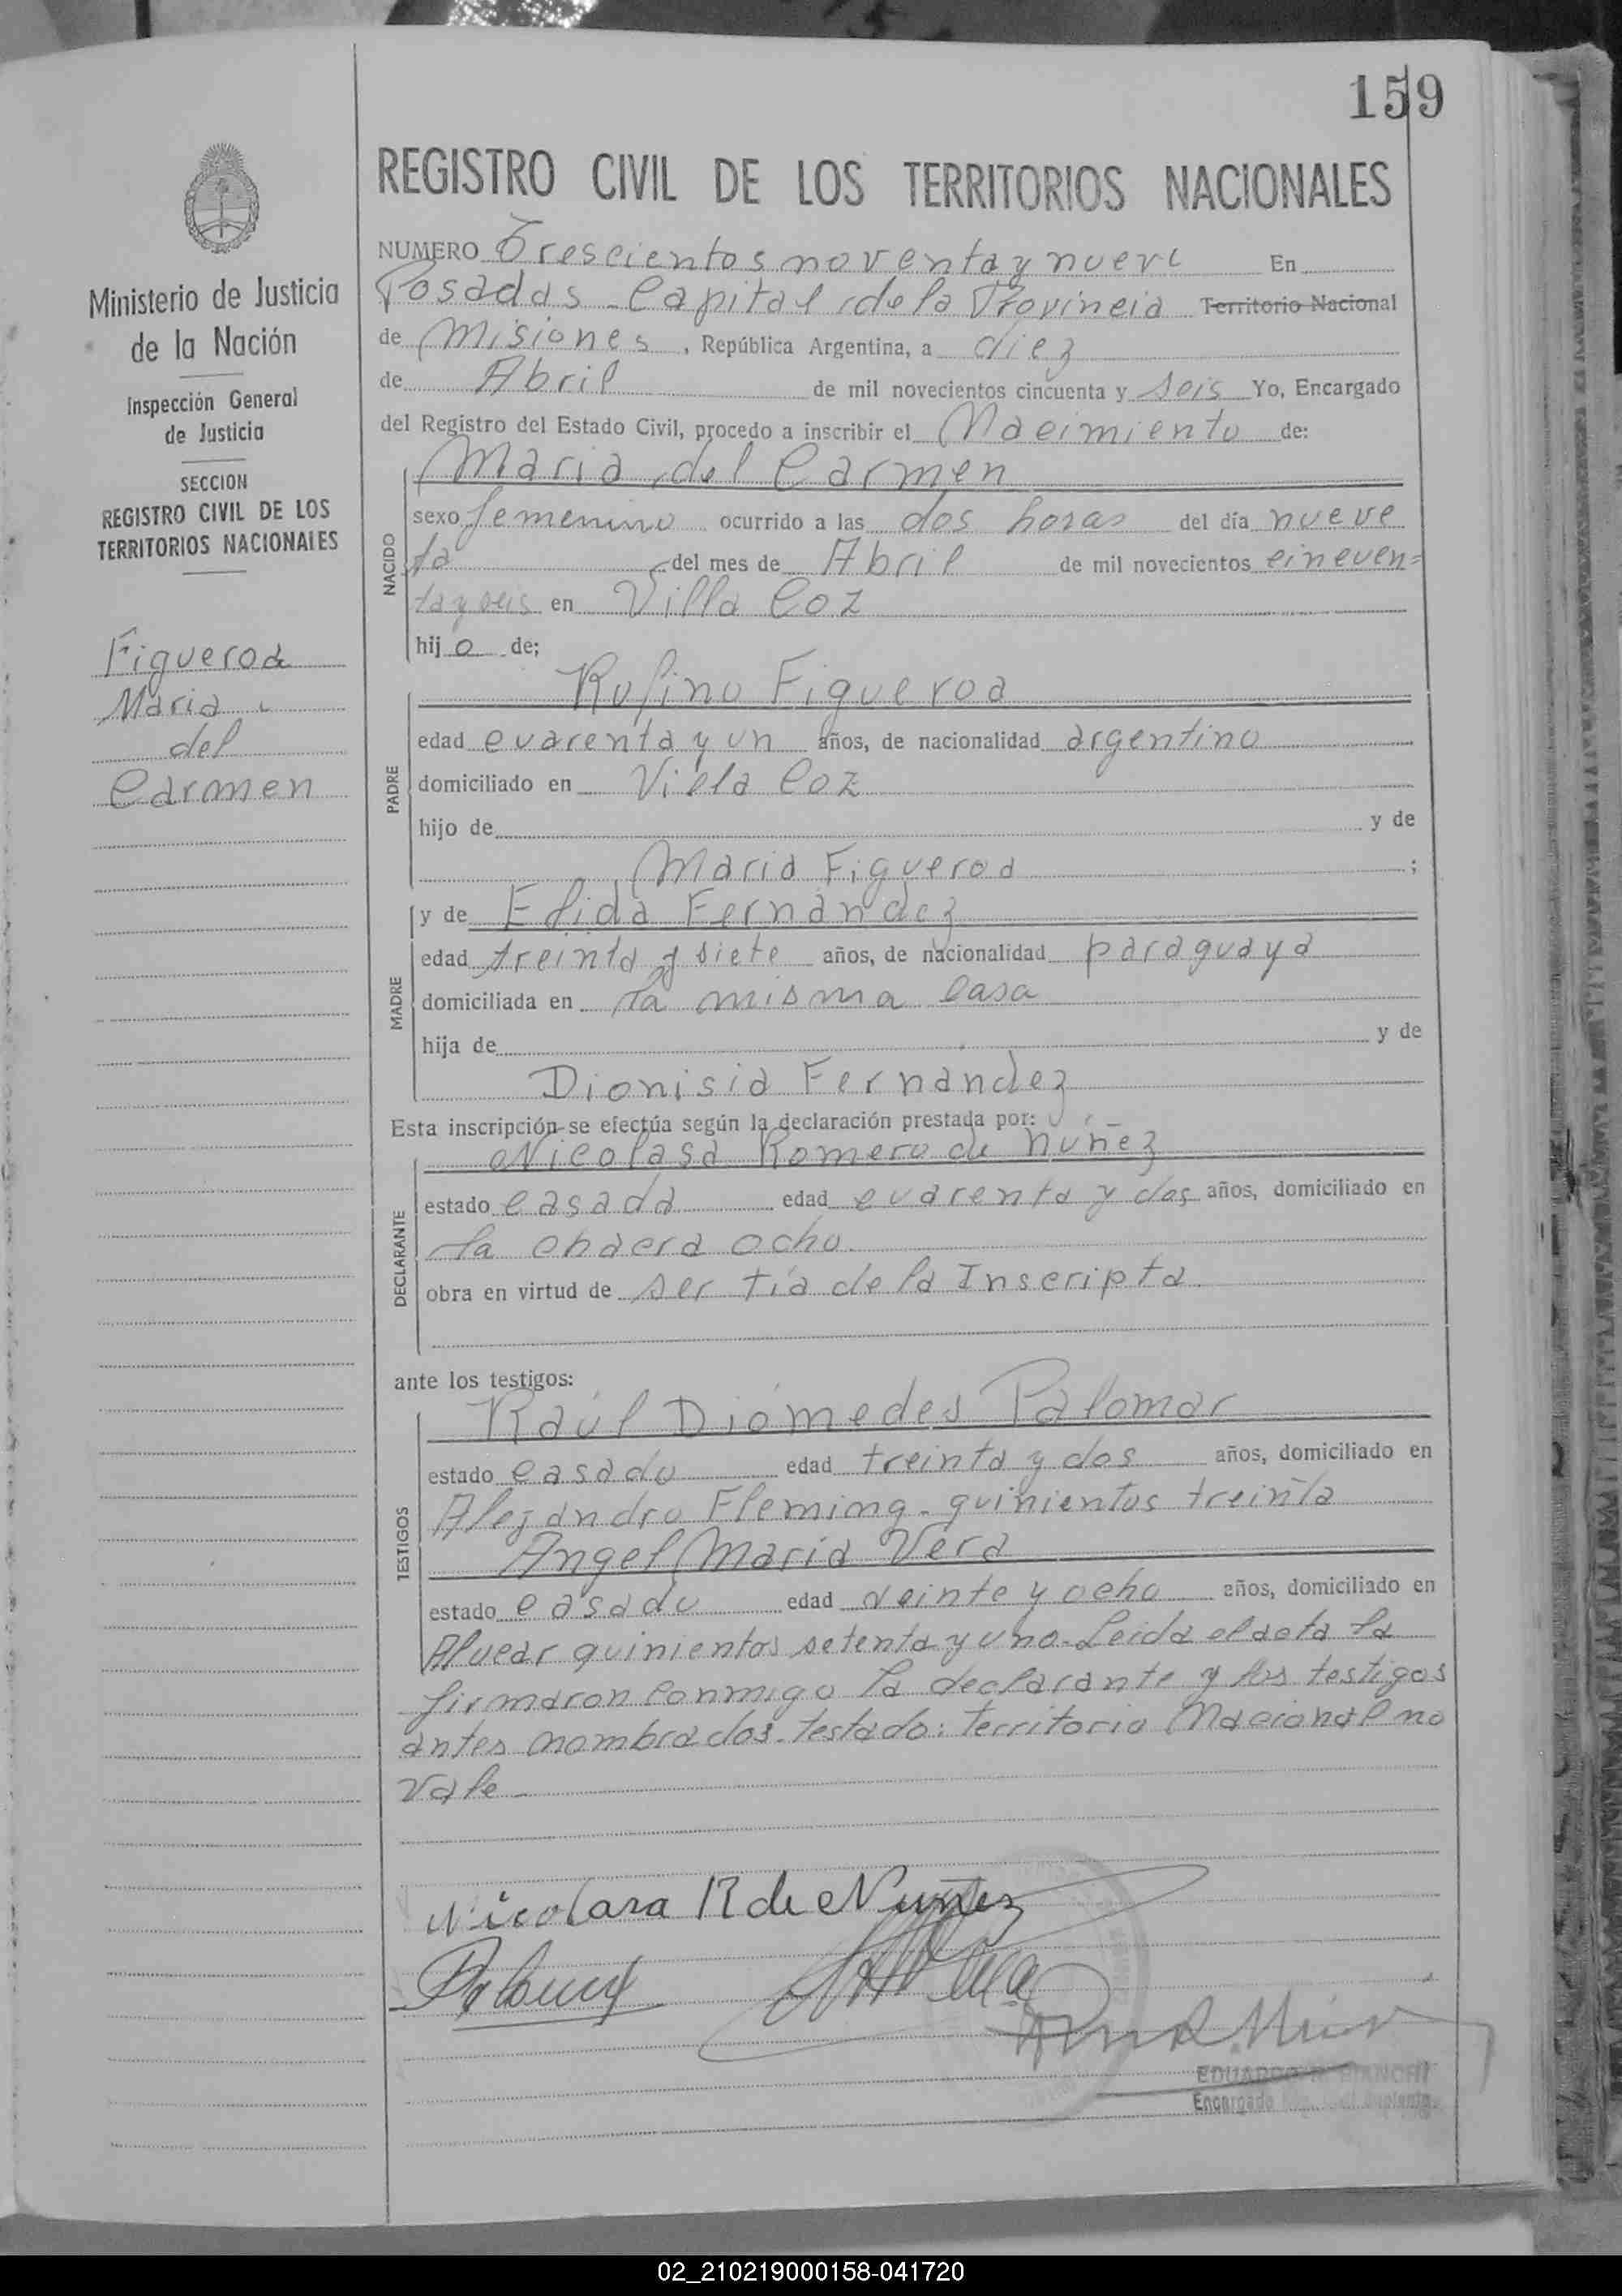 159
REGISTRO CIVIL DE LOS TERRITORIOS NACIONALES
Ministerio de Justicia
de la Nación
Inspección General
de Justicia
SECCION
REGISTRO CIVIL DE LOS
TERRITORIOS NACIONALES
Figueroa
Maria
del
Carmen
NUMERO Trescientos noventa y nueve En
Posadas - Capital de la Provincia Territorio Nacional
de Misiones, República Argentina, a diez
de Abril de mil novecientos cincuenta y seis Yo, Encargado
del Registro del Estado Civil, procedo a inscribir el Nacimiento de:
NACIDO
Maria del Carmen
sexo femenino ocurrido a las dos horas del día nueve
del mes de Abril de mil novecientos cincuen=
ta y seis en Villa Coz
hija de;
PADRE
Rufino Figueroa
edad cuarenta y un años, de nacionalidad argentino
domiciliado en Villa Coz
hijo de y de
Maria Figueroa ;
MADRE
y de Elida Fernandez
edad treinta y siete años, de nacionalidad paraguaya
domiciliada en la misma casa
hija de y de
Dionisia Fernandez
Esta inscripción se efectúa según la declaración prestada por:
DECLARANTE
Nicolasa Romero de Nuñez
estado casada edad cuarenta y dos años, domiciliado en
la chacra ocho.
obra en virtud de ser tía de la Inscripta
ante los testigos:
TESTIGOS
Raúl Diómedes Palomar
estado casado edad treinta y dos años, domiciliado en
Alejandro Fleming - quinientos treinta
Angel Maria Vera
estado casado edad veinte y ocho años, domiciliado en
Alvear quinientos setenta y uno - Leida el acta la
firmaron conmigo la declarante y los testigos
antes nombrados - testado: Territorio Nacional no
vale -
Nicolasa R de Nuñez
EDUARDO BIANCHI
Encargado
02_210219000158-041720